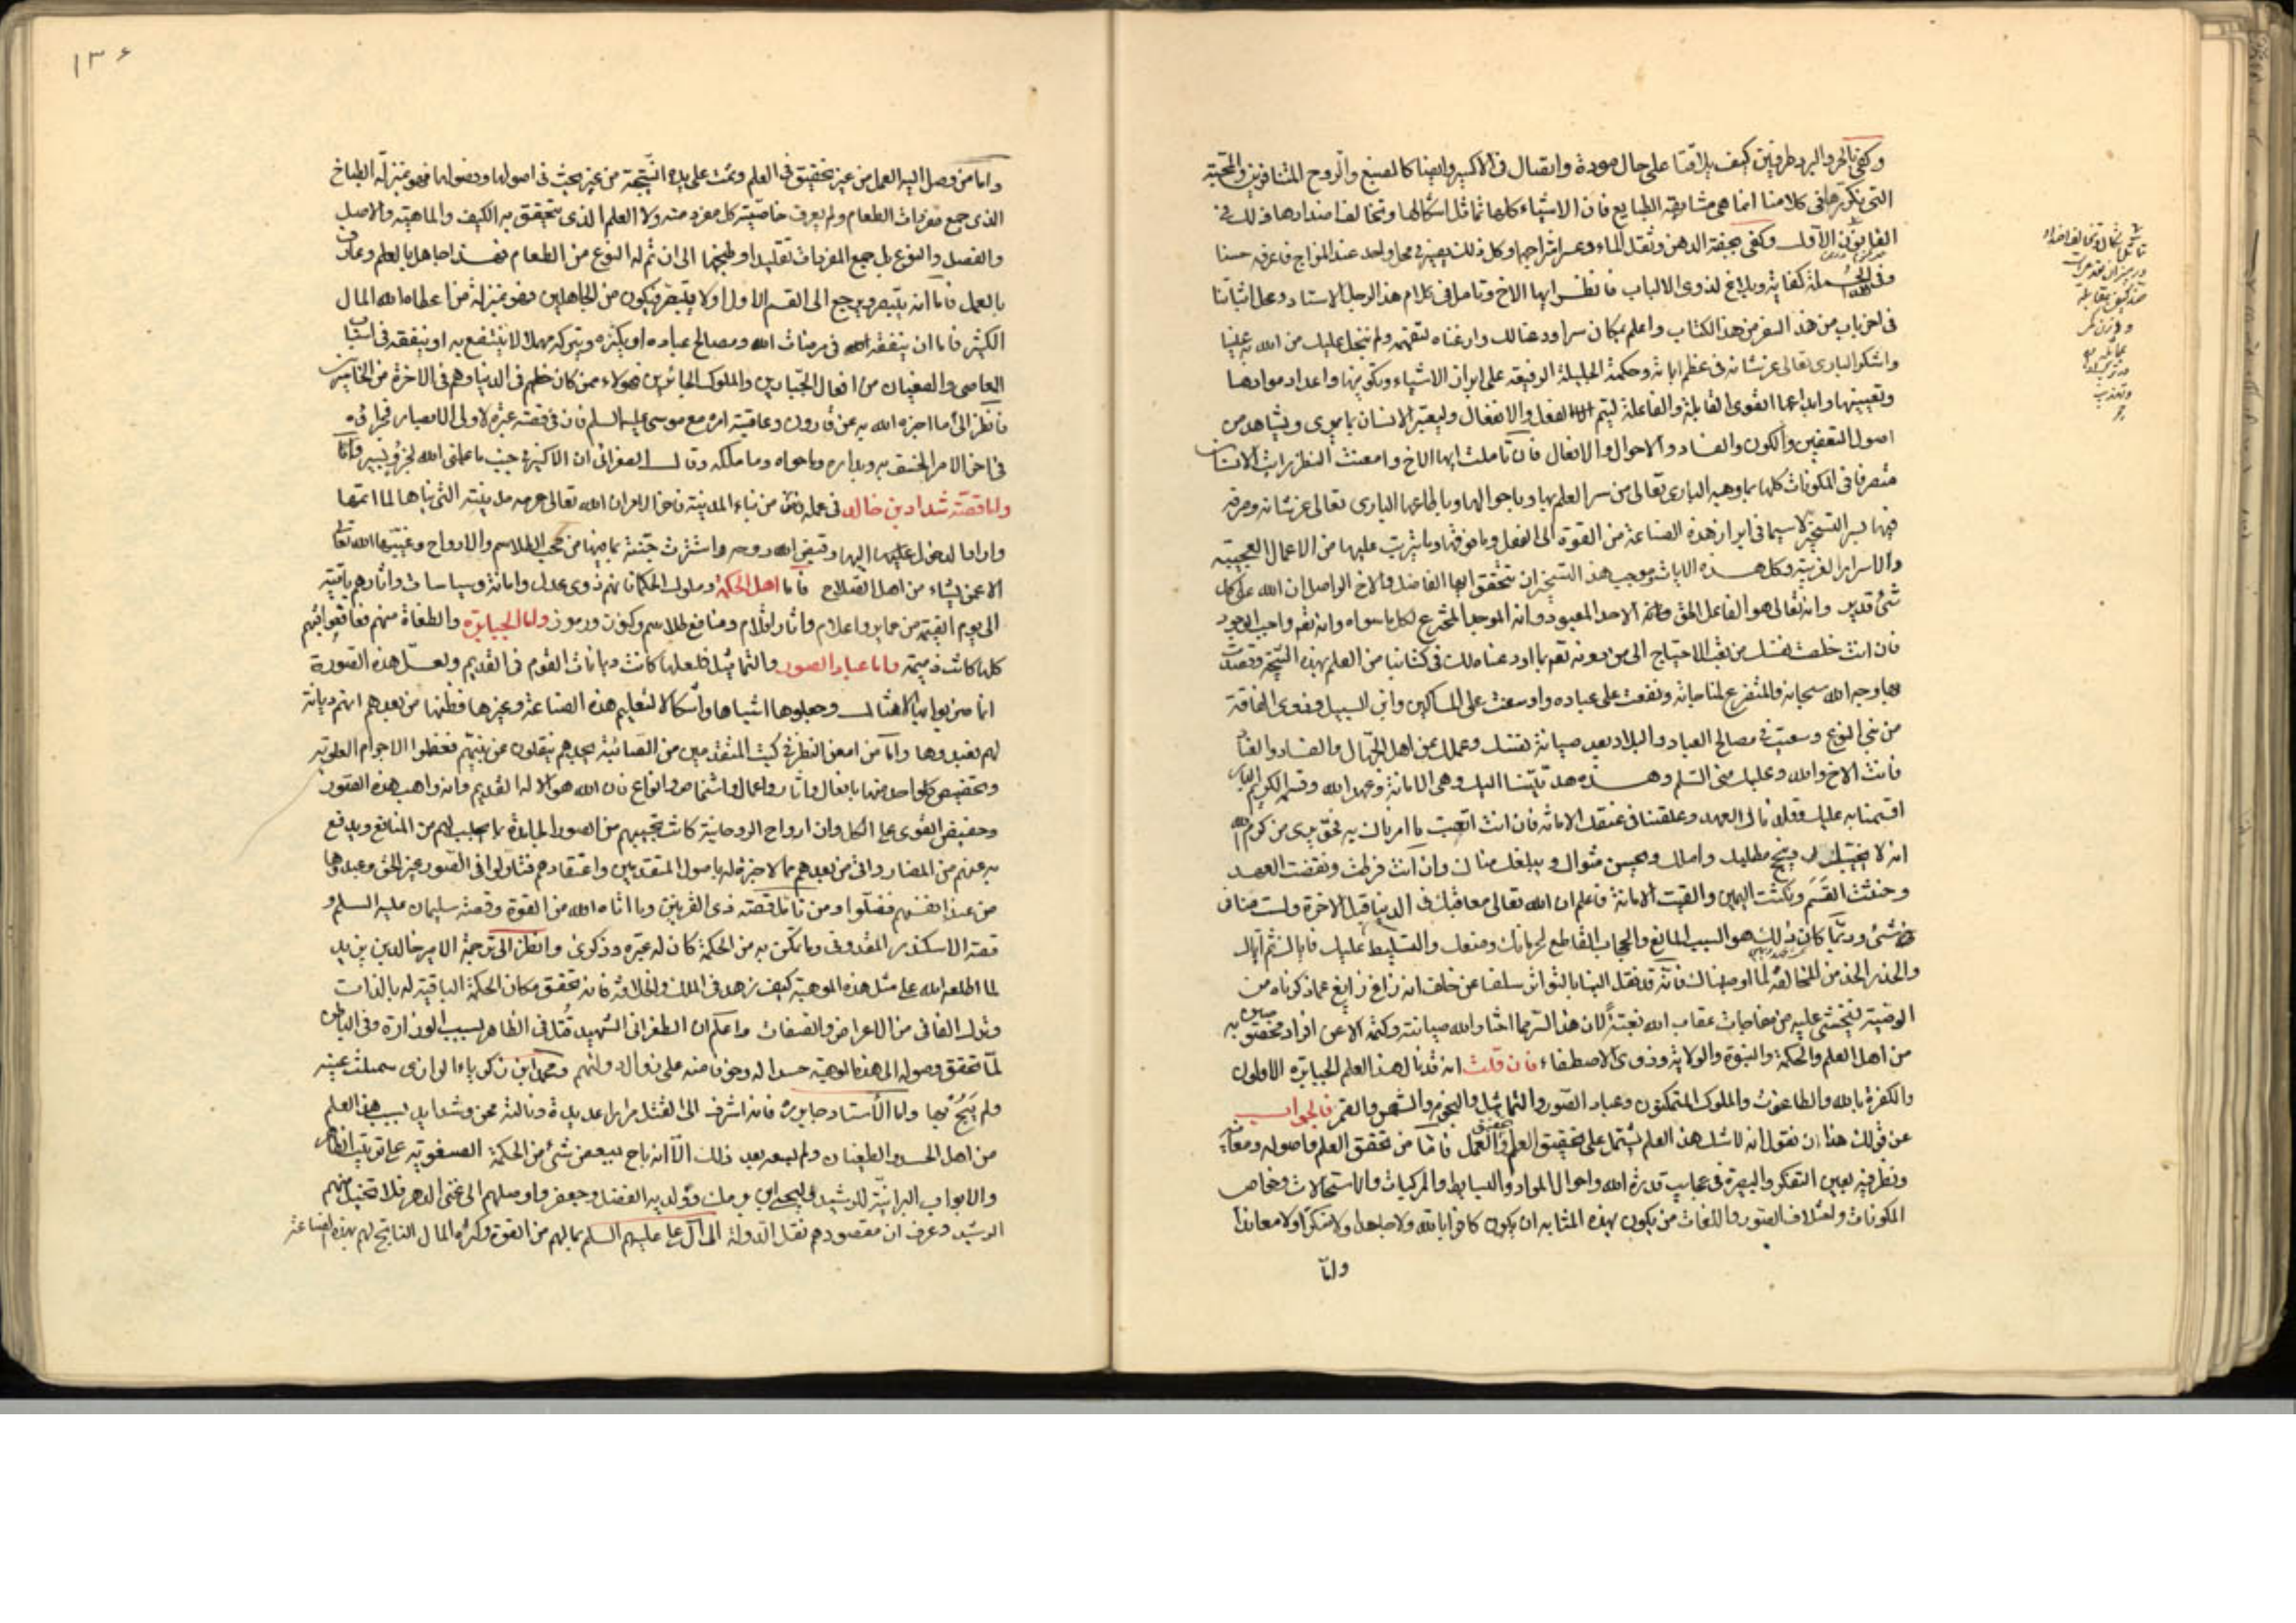 وكفى بالحر والبرد طرفين كيف يلاقتا على حال مودة واتصال في الاكسير وايضا كالصبغ والروح المتنافرين والمحبة
التي نكررها في كلامنا انما هي مشابهة الطبايع فان الاشياء كلها تماثل اشكالها وتخالف اضدادها وذلك في
القانون الاول وكفى بخفة الدهن وثقل الماء وعسر امتزاجهما وكل ذلك يصير في محل واحد عند المزاج فاعرفه حسنا
وفي الجملة كفاية وبلاغ لذوي الالباب فانظر ايها الاخ وتامل في كلام هذا الرجل الاستاد وعلى اثباتنا
في اخر باب من هذا السفر من هذا الكتاب واعلم بمكان سر اودعنا لك واردناه لتفهم ولم نبخل عليك من الله به علينا
واشكر الباري تعالى عز شانه في عظم اياته وحكمة الجليلة الوفيقه على ابراز الاشياء وتكوينها واعداد موادها
وتعيينها وابداعها القوى القابلة والفاعلة ليتم الفعل والانفعال وليعتبر الانسان بما يرى ويشاهد من
اصول التعفين والكون والفساد والاحوال والافعال فان تاملت ايها الاخ وامعنت النظر رايت الانسان
متصرفا في المكونات كلها بما وهبه الباري تعالى من سر العلم بها وباحوالها وبالطباعها الباري تعالى عز شانه وصرفه
فيها بسر التسخير لا سيما في ابراز هذه الصناعة من القوة الى الفعل وما فوقها وما يترتب عليها من الاعمال العجيبة
والاسرار الغريبة وكل هذه الايات وموجب هذا التسخير ان تتحقق ايها الفاضل والاخ الواصل ان الله على كل
شئ قدير وانه تعالى هو الفاعل الحق وانه الاحد المعبود وانه الموجد المخترع لكل ما سواه وانه ثقة واجب الوجود
فان انت خلصت نفسك من تعب الاحتياج الى من دونه تعم بما اودعناه لك في كتابنا من العلم بهذه النتيجة وقصدت
بها وجه الله سبحانه والمتفرع لمناجاته ونفعت على عباده واوسعت على المساكين وابن السبيل وذوي الفاقة
من بني النوع وسعيت في مصالح العباد والبلاد بعد صيانة نفسك وعملك عن اهل الجهال والفساد والعناد
فانت الاخ والله وعليك مني السلم وهذه هديتنا اليك وهي الامانة وعهد الله وقسم الكريم
اقسمنا به عليك وقلدناك العهد وعلقنا في عنقك الامانة فان انت اتعبت ما امرناك به فحق يدي من كرم الله
انه لا يخيبك وينجح مطلبك واملك ويحسن مثواك ويبلغك مناك وان انت فرطت ونقضت العهد
وحنثت القسم ونكثت اليمين والقيت الامانة فاعلم ان الله تعالى معاقبك في الدنيا قبل الاخرة ولست منا في
شئ وربما كان ذلك هو السبب المانع والحجاب القاطع لحرمانك ومنعك والتسليط عليك فاياك ثم اياك
والحذر الحذر من المخالفة لما اوصيناك فانه قد نقل الينا بالتواتر سلفا عن خلف انه زاغ زايغ عما ذكرناه من
الوصية فيخشى عليه من مفاجات عقاب الله بغتة لان هذا السر مما اختار الله صيانته وكتمه الا عن افراد مخصوصين به
من اهل العلم والحكمة والنبوة والولاية وذوي الاصطفاء فان قلت انه قد نال هذا العلم الجبابرة الاولون
والكفرة بالله والطاغوت والملوك المتمكنون وعباد الصور والتماثيل والنجوم والشمس والقمر فالجواب
عن قولك هذا ان نقول انه لا شك هذا العلم يشتمل على تحقيق العلم وتحقيق العمل فاما من تحقق العلم فاصوله ومعانيه
ونظر فيه بعين التفكر والبصيرة في عجايب قدرة الله واحوال المواد والبسايط والمركبات والاستحالات وخواص
المكونات ولاختلاف الصور واللغات من يكون بهذه المثابه ان يكون كافرا بالله ولا جاهلا ولا منكرا ولا معاندا
واما
تماثل اشكال وتخالف اضداد
١٣٦
واما من وصل اليه العمل من غير تحقيق في العلم وتمت على يده النتيجة من غير بحث في اصولها وفصولها فهو بمنزلة الطباخ
الذي جمع مفردات الطعام ولم يعرف خاصية كل مفرد منه ولا العلم الذي يتحقق به الكيف والماهية والاصل
والفصل والنوع بل جمع المفردات تقليدا وطبخها الى ان تم له النوع من الطعام فهذا جاهل بالعلم وعارف
بالعمل فاما انه يتبصر ويرجع الى القسم الاول او لا يتبصر فيكون من الجاهلين وهو بمنزلة من اعطاه الله المال
الكثير فاما ان ينفقه في مرضات الله ومصالح عباده او يكنزه ويتركه مهملا لا ينتفع به او ينفقه في اسباب
المعاصي والطغيان من افعال الجبارين والملوك الجائرين فهولاء ممن كان حظهم في الدنيا وهم في الاخرة من الخاسرين
فانظر الى ما اخبره الله به عن قارون وعاقبة امره مع موسى عليه السلم فان في قصته عبرة لاولى الابصار فجرائه
في اخر الامر الخسف به وبداره وما حواه وما ملكه وقال الطغرائي ان الاكسير في جنب ما علمني الله لجزؤ يسير واما
واما قصة شداد بن خالد في عمله من بناء المدينة فاخر الامر ان الله تعالى حرمه مدينته التي بناها لما اتمها
واراد الدخول اليها وقبض الله روحه واشترت جنته بما فيها من عجب الطلاسم والارواح وغيبها الله تعالى
الا عمن يشاء من اهل الصلاح فاما اهل الحكمة وملوك الحكما فانهم ذوي عدل وامانة وسياسات واثارهم باقية
الى يوم القيمة من عماير واعلام واثار اقلام ومنافع طلاسم وكنوز ورموز واما الجبابرة والطغاة منهم فعاقبوا انهم
كلها كانت ذميمة واما عباد الصور والتماثيل فلعلها كانت ديانات القوم في القديم ولعل هذه الصورة
انما ضربوا بها الامثال وجعلوها اشباها واشكالا لتعليم هذه الصناعة وغيرها فظنها من بعدهم انهم ديانة
لهم يعبدوها واما من امعن النظر في كتب المتقدمين من الصابئة يجدهم ينقلون عن نبيهم فعظموا الاجرام العلوية
وتخصيص كل واحد منها بافعال واثار واعمال واشخاص وانواع فان الله هو الاله القديم وانه واهب هذه الصور
وحفيض القوى على الكل وان ارواح الروحانية كانت تجيبهم من الصور الجامدة بما يجلب لهم من المنافع ويدفع
به عنهم من المضار واتى من بعدهم ممن لا خبرة له باصول المتقدمين واعتقادهم فتاولوا في الصور غير الحق وعبدوها
من عند انفسهم فضلوا ومن تامل قصة ذي القرنين وما اتاه الله من القوة وقصة سليمان عليه السلم و
قصة الاسكندر المقدوني وما تمكن به من الحكمة كان له عبرة وذكرى وانظر الى ترجمة الامير خالد بن يزيد
لما اطلعه الله على مثل هذه الموهبة كيف زهد في الملك والخلافة فانه تحقق مكان الحكمة الباقية له بالذات
وترك الفاني من الاعراض والصفات واعلم ان الطغرائي الشهيد قتل في الظاهر بسبب الوزارة وفي الباطن
لما تحقق وصوله الى هذه الموهبة حسدا له وخوفا منه على زوال دولتهم ومحمد بن زكرياء الرازي سملت عينه
ولم ينج بها واما الاستاد جابر فانه اشرف الى القتل مرارا عديدة ونالته محن وشدايد بسبب هذا العلم
من اهل الحسد والطغيان ولم يسعه بعد ذلك الا انه باح ببعض شئ من الحكمة الصفوية على ترتيب الظاهر
والابواب البرانية للرشيد وليحيى ابن برمك وولديه الفضل وجعفر واوصلهم الى غنى الدهر فلا تخيل منهم
الرشيد وعرف ان مقصودهم نقل الدولة الى آل علي عليهم السلم بما لهم من القوة وكثرة المال الناتج لهم بهذه الصناعة